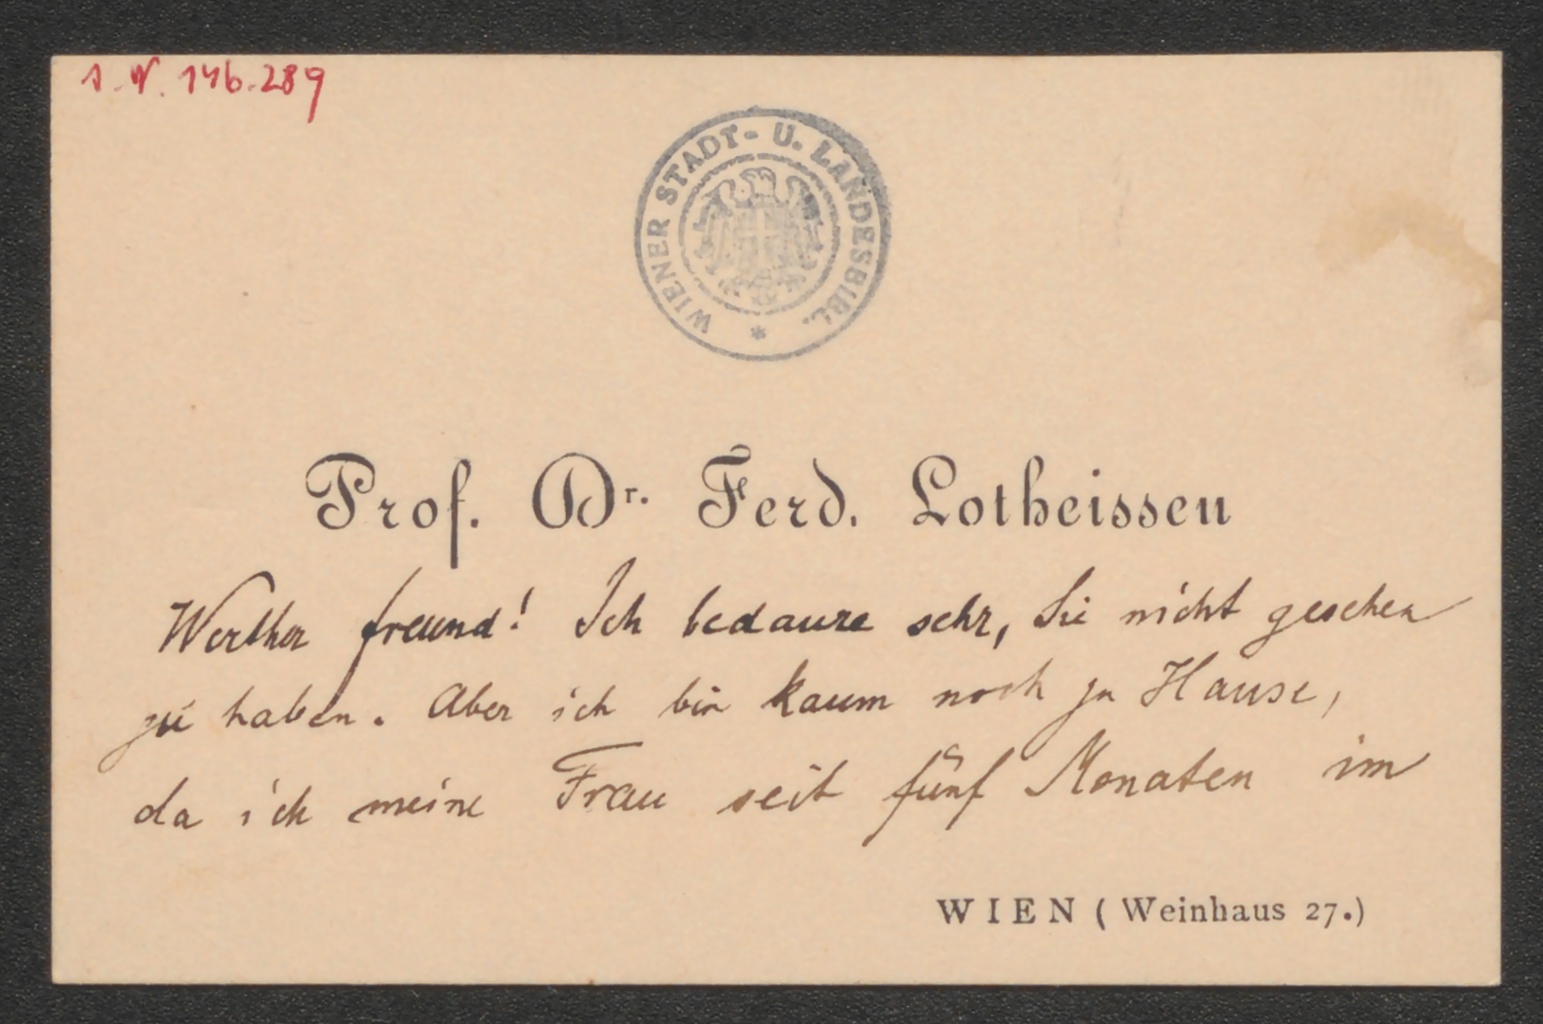 I.N. 146.289
WIENER STADT- U. LANDESBIBL. *
Prof. Dr. Ferd. Lotheissen
Werther Freund! Ich bedaure sehr, Sie nicht gesehen
zu haben. Aber ich bin kaum noch zu Hause,
da ich meine Frau seit fünf Monaten im
WIEN (Weinhaus 27.)